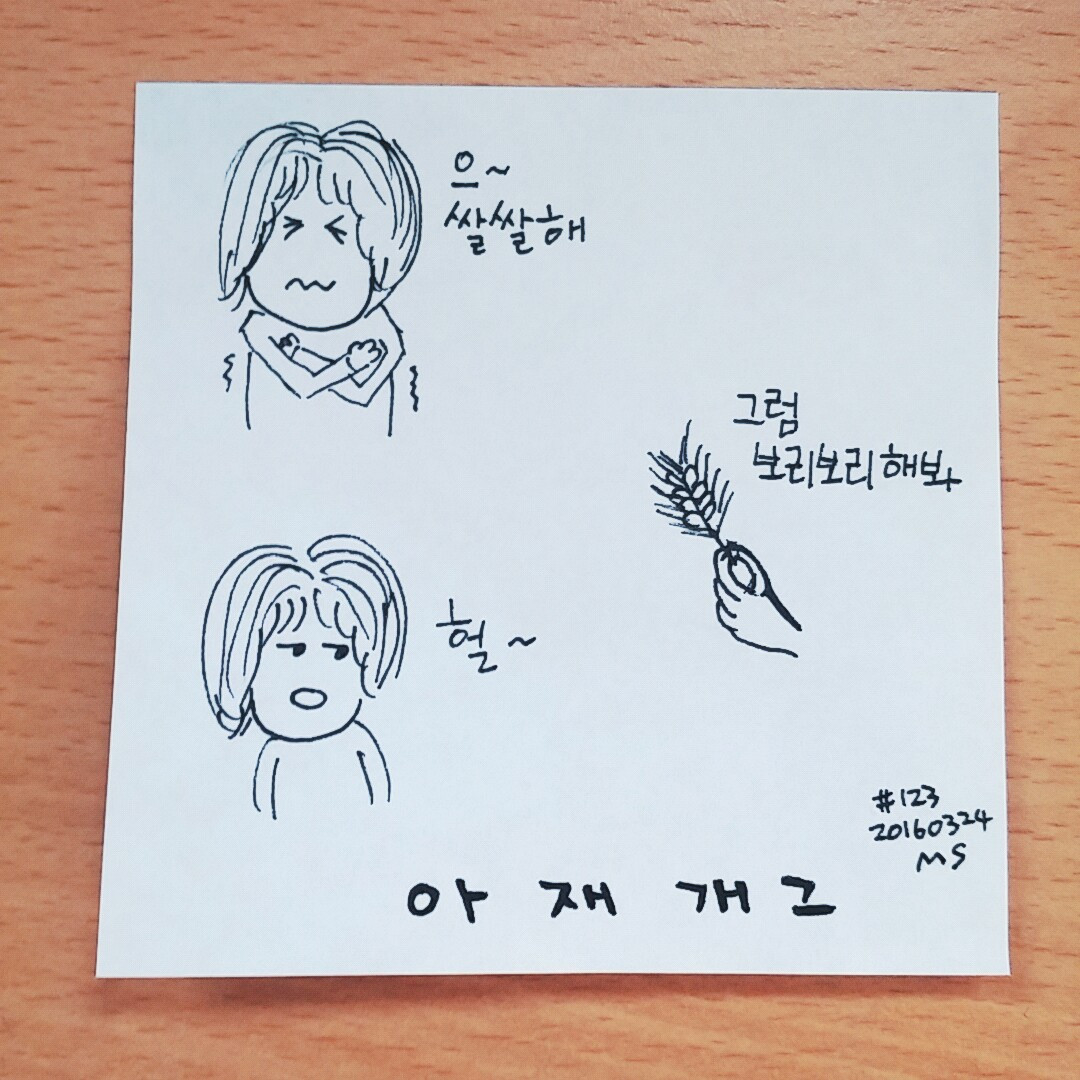 으~
쌀쌀해
그럼
보리보리해봐
헐~
#123
20160324
MS
아재개그